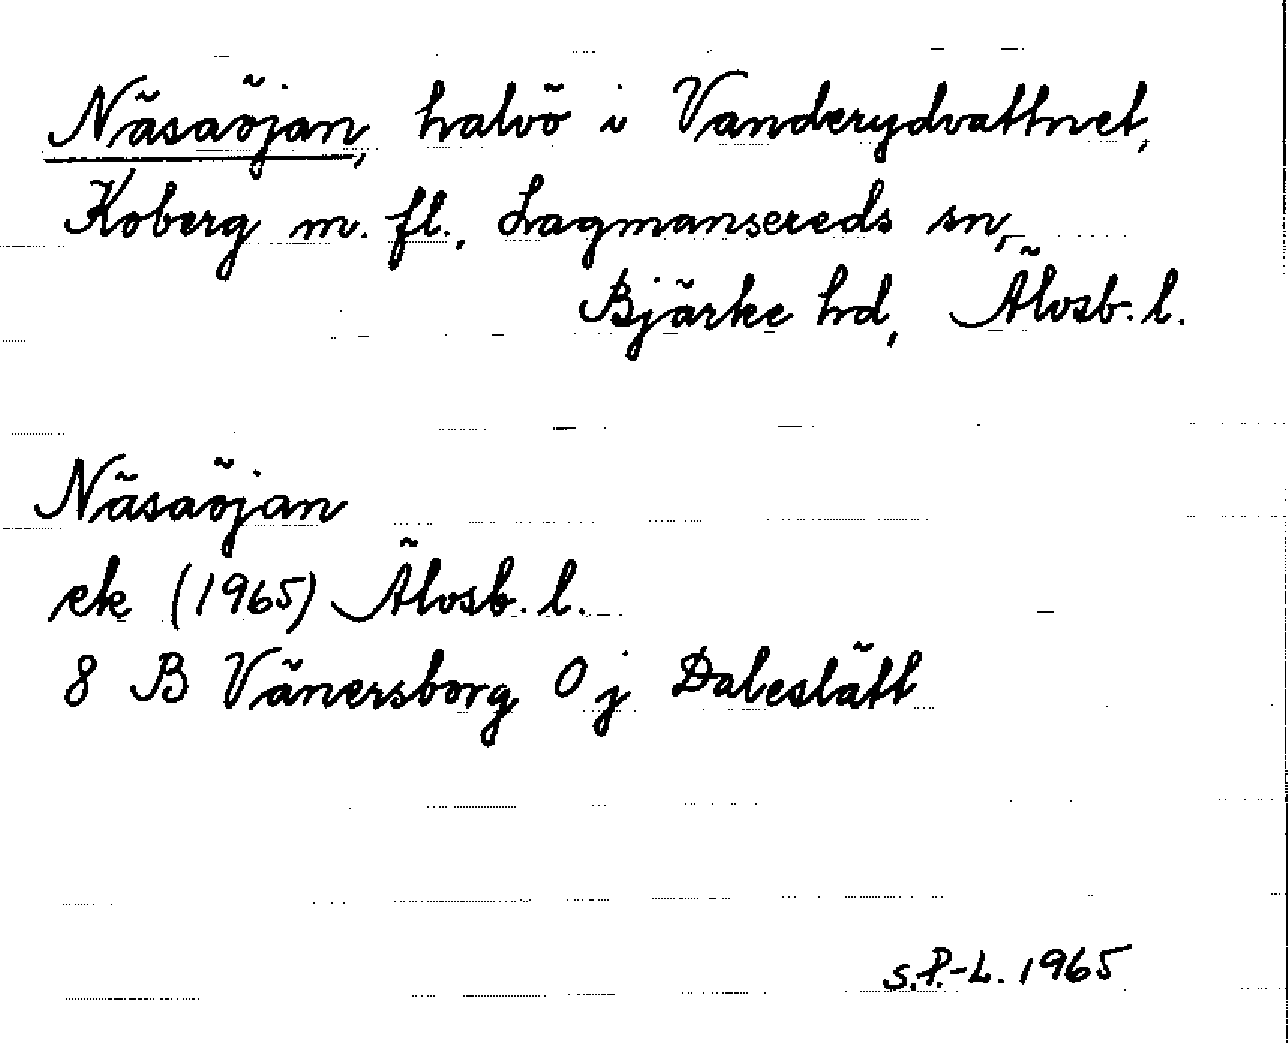 Näsaöjan, halvö i Vanderydvattnet,
Koberg m. fl., Lagmansereds sn,
Bjärke hd, Älvsb. l.
Näsaöjan
ek (1965) Älvsb. l.
8 B Vänersborg 0 j Daleslätt
S.P.-L. 1965